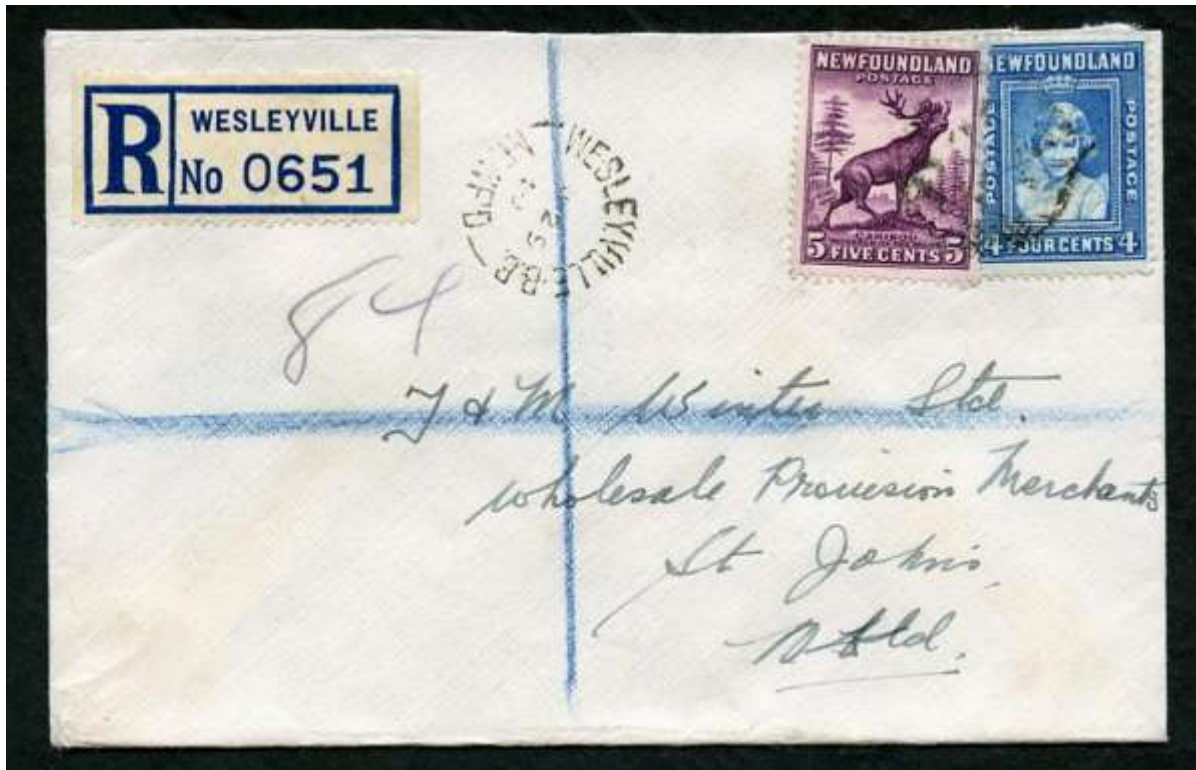 R WESLEYVILLE
No 0651
WESLEYVILLE B.B
NEWFOUNDLAND
POSTAGE
CARIBOU
5 FIVE CENTS 5
NEWFOUNDLAND
POSTAGE POSTAGE
4 FOUR CENTS 4
84
T & M Winter Ltd.
Wholesale Provision Merchants
St John's
Nfld.